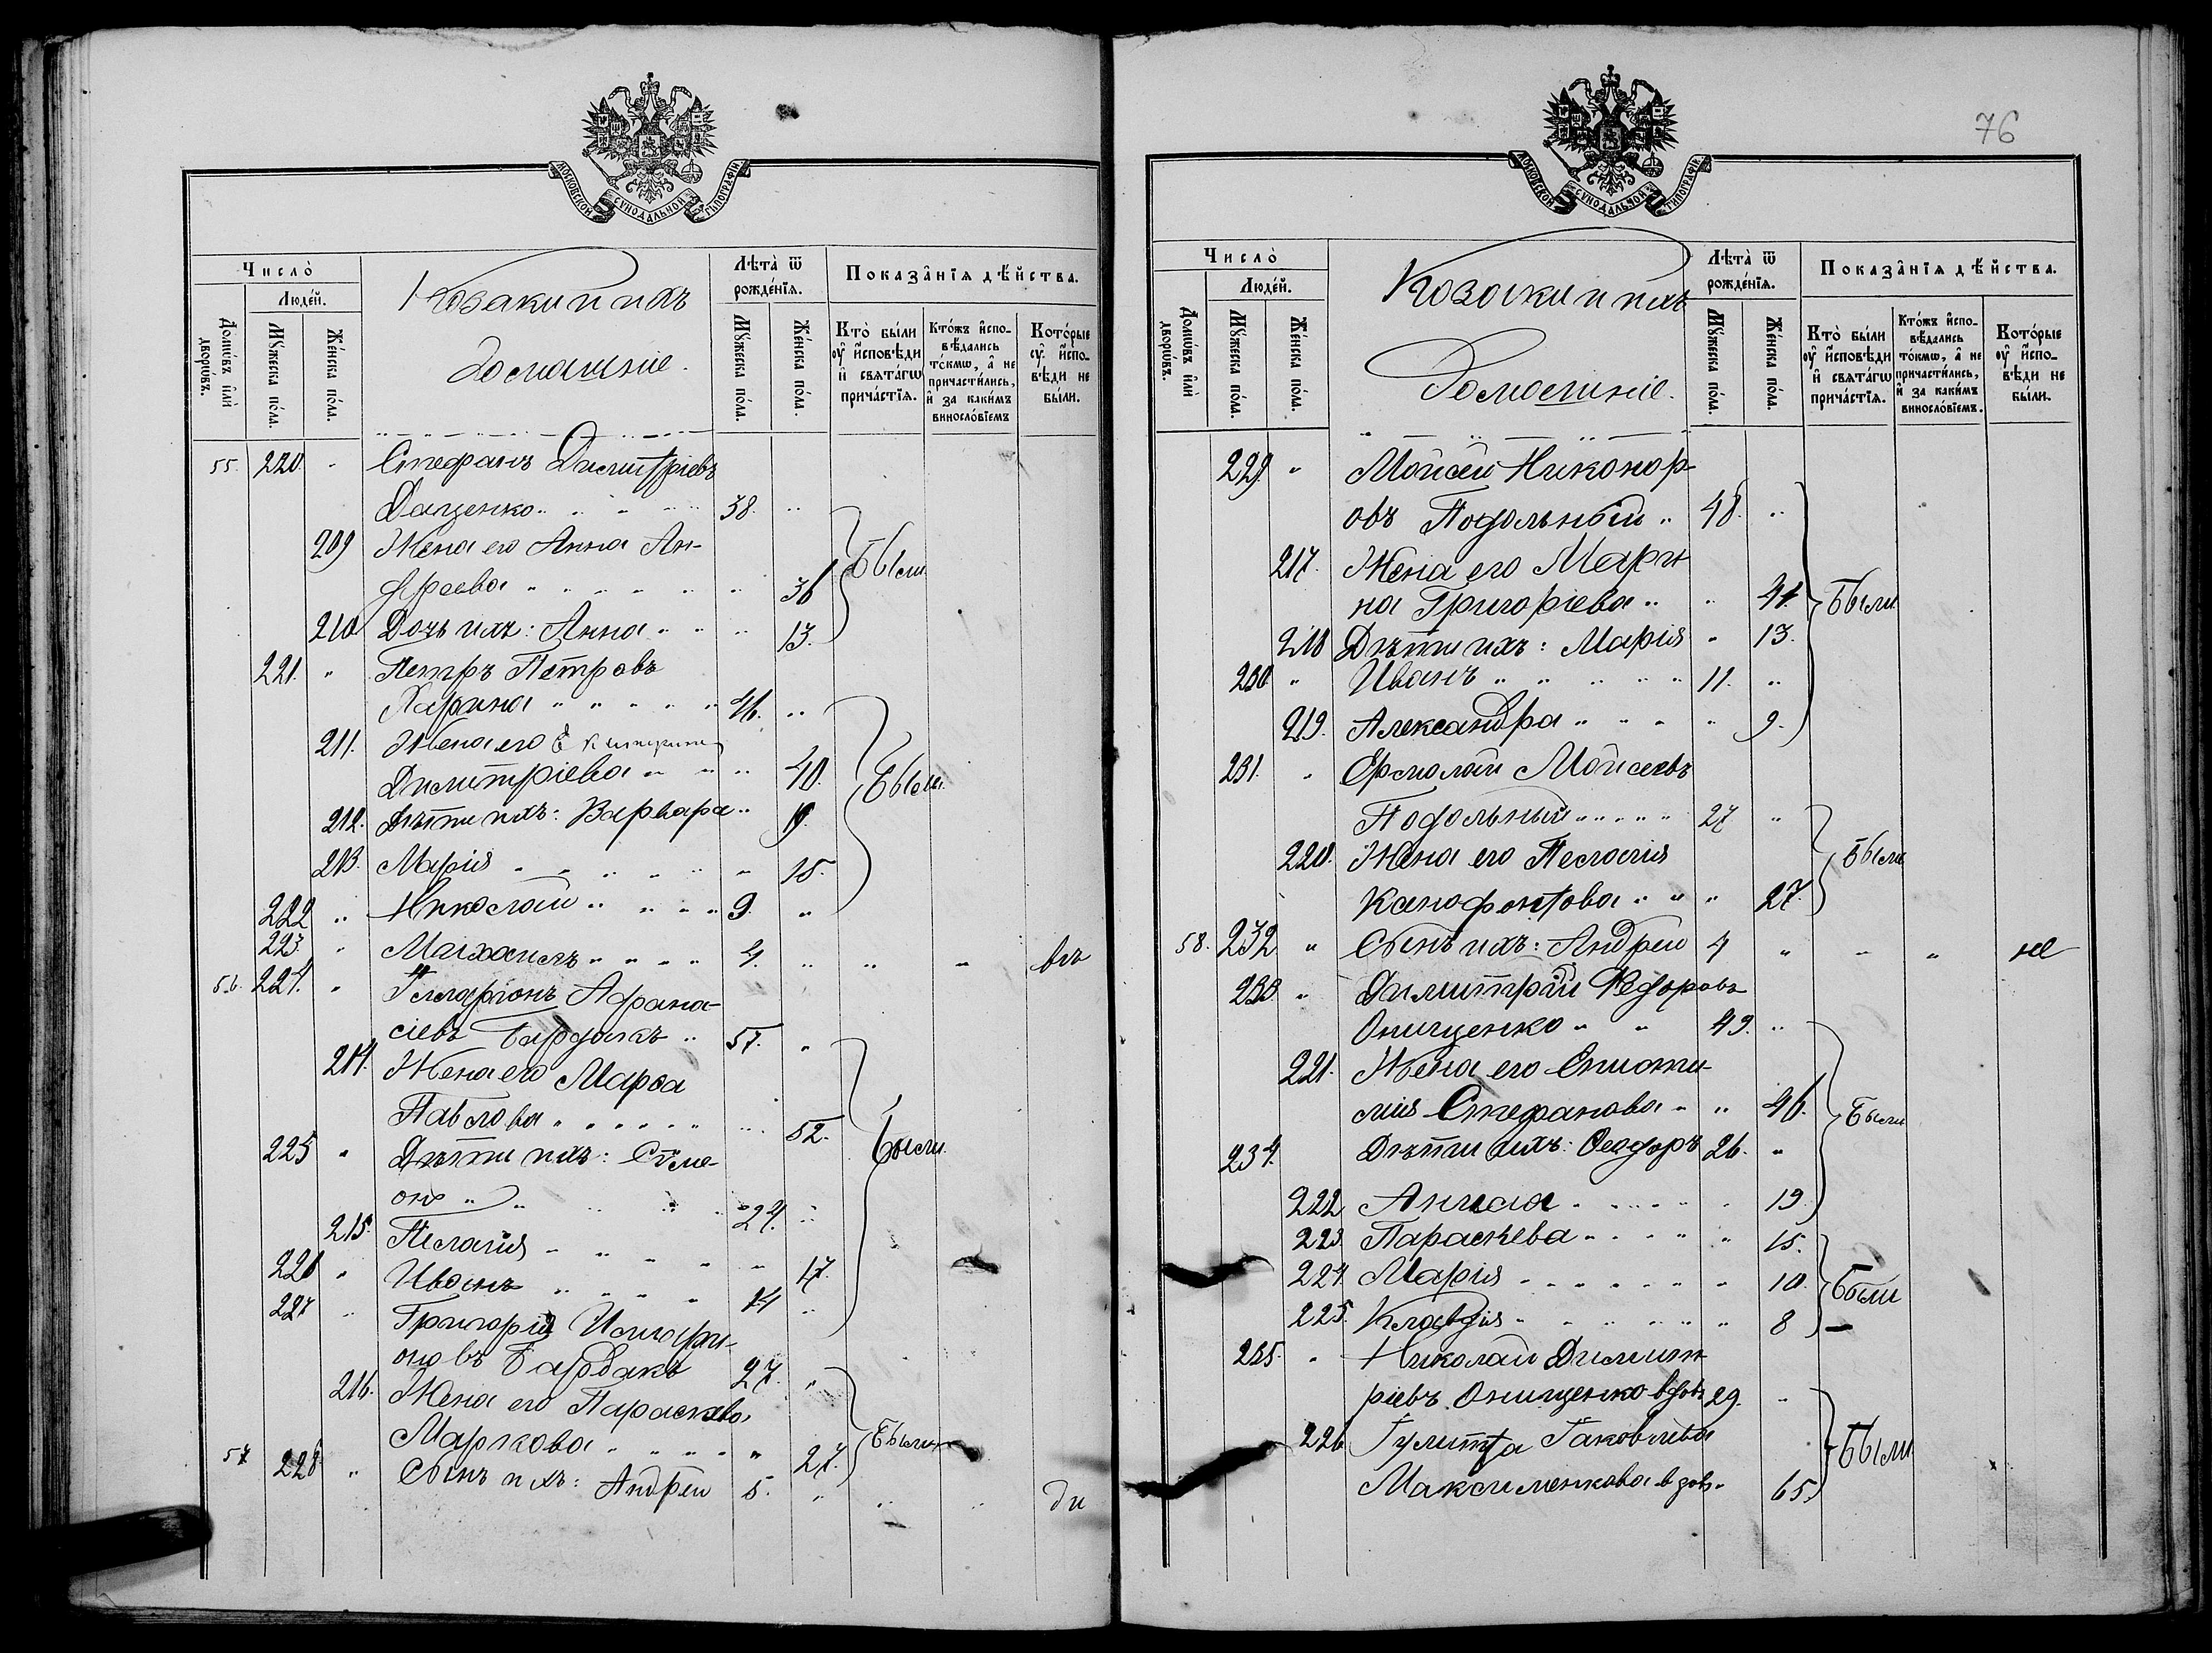 МОСКОВСКОЙ СѴНОДАЛЬНОЙ ТИПОГРАФІИ
Число̀
Людей.
Домѡвъ и҆лѝ дворѡвъ.
Мꙋжеска пола.
Женска пола.
Козаки и ихъ
домашніе.
Лѣта̀ ѿ рожденїѧ.
Мꙋжеска пола.
Женска пола.
Показанїѧ дѣйства.
Кто̀ были оу҆ и҆сповѣди и҆ свѧтагѡ причастїѧ.
Ктожъ и҆сповѣдались токмѡ, а҆ не причастились, и҆ за какимъ винословїемъ
Которые оу҆ и҆сповѣди не были.
55. 220. " Стефанъ Димитріевъ
Даценко " " " " 38. "
209 Жена его Анна Ан-
дреева " " " " " " 36 Были
210 Дочь ихъ: Анна " " " 13.
221. " Петръ Петровъ
Харина " " " " " 46. "
211. Жена его Екатерина
Димитріева " " " 40. Были
212. Дѣти ихъ: Варвара " 19.
213. Марія " " " " " " 15.
222 " Николай " " " " 9. "
223. " Михаилъ " " " " 4. " " " въ
56. 224. " Іларіонъ Афана-
сіевъ Бардакъ " 57. "
214. Жена его Марѳа
Павлова " " " " " " " 52. Были
225 " Дѣти ихъ: Сѵме-
онъ " " " " " 24. "
215. Пелагія " " " " " 17.
226 " Иванъ " " " " 14 "
227 " Григорій Илларі-
оновъ Бардакъ 27. "
216. Жена его Параскева
Маркова " " " " " 27. Были
57 228 " Сынъ ихъ: Андрей 5. " " " ди
76
МОСКОВСКОЙ СѴНОДАЛЬНОЙ ТИПОГРАФІИ
Число̀
Людей.
Домѡвъ и҆лѝ дворѡвъ.
Мꙋжеска пола.
Женска пола.
Козаки и ихъ
Домашніе.
Лѣта̀ ѿ рожденїѧ.
Мꙋжеска пола.
Женска пола.
Показанїѧ дѣйства.
Кто̀ были оу҆ и҆сповѣди и҆ свѧтагѡ причастїѧ.
Ктожъ и҆сповѣдались токмѡ, а҆ не причастились, и҆ за какимъ винословїемъ.
Которые оу҆ и҆сповѣди не были.
229. " Мойсей Никонор-
овъ Подольный " 48. "
217. Жена его Мари-
на Григоріева " " 41. Были
218 Дѣти ихъ: Марія " 13.
230. " Иванъ " " " " " 11. "
219. Александра " " " " 9.
231. " Ермолай Мойсеевъ
Подольный " " " " " 27 "
220. Жена его Пелагія Были
Ксенофонтова " " " 27.
58. 232 " Сынъ ихъ: Андрей 4 " " " не
233. " Димитрій Ѳедоровъ
Онищенко " " 49. "
221. Жена его
Стефанова " " 46. Были
234. Дѣти ихъ: Ѳеодоръ 26. "
222 Анисія " " " " " 19.
223. Параскева " " " " " 15.
224. Марія " " " " " " " 10. Были
225. Клавдія " " " " " " 8 —
235. " Николай Димит-
ріевъ Онищенко вдов. 29. "
226 Іулитта Іаковлева Были
Максименкова вдов. " 65.